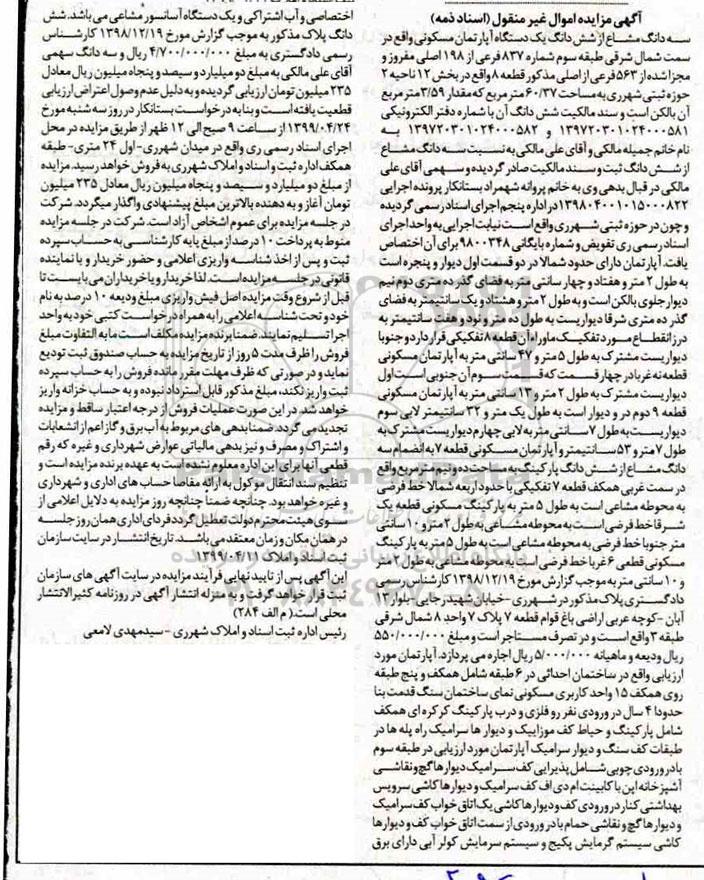 آگهی مزایده اموال غیر منقول (اسناد ذمه)
سه دانگ مشاع از شش دانگ یک دستگاه آپارتمان مسکونی واقع در
سمت شمال شرقی طبقه سوم شماره ۸۳۷ فرعی از ۱۹۸ اصلی مفروز و
مجزا شده از ۵۶۳ فرعی از اصلی مذکور قطعه ۸ واقع در بخش ۱۲ ناحیه ۲
حوزه ثبتی شهرری به مساحت ۶۰/۳۷ متر مربع که مقدار ۳/۵۹ متر مربع
آن بالکن است و سند مالکیت شش دانگ آن با شماره دفتر الکترونیکی
۱۳۹۷۲۰۳۰۱۰۲۴۰۰۰۵۸۱ و ۱۳۹۷۲۰۳۰۱۰۲۴۰۰۰۵۸۲ به
نام خانم جمیله مالکی و آقای علی مالکی به نسبت سه دانگ مشاع
از شش دانگ ثبت و سند مالکیت صادر گردیده و سهمی آقای علی
مالکی در قبال بدهی وی به خانم پروانه شهمراد بستانکار پرونده اجرایی
۱۳۹۸۰۴۰۰۱۰۱۵۰۰۰۸۲۲ در اداره پنجم اجرای اسناد رسمی گردیده
و چون در حوزه ثبتی شهرری واقع است نیابت اجرایی به واحد اجرای
اسناد رسمی ری تفویض و شماره بایگانی ۹۸۰۰۳۴۸ برای آن اختصاص
یافت. آپارتمان دارای حدود شمالا در دو قسمت اول دیوار و پنجره است
به طول ۲ متر و هفتاد و چهار سانتی متر به فضای گذر ده متری دوم نیم
دیوار جلوی بالکن است و به طول ۲ متر و هشتاد و یک سانتیمتر به فضای
گذر ده متری شرقا دیواریست به طول ده متر و نود و هفت سانتیمتر به
درز انقطاع مورد تفکیک ماوراء آن قطعه ۸ تفکیکی قرار دارد و جنوبا
دیواریست مشترک به طول ۵ متر و ۴۷ سانتی متر به آپارتمان مسکونی
قطعه نه غربا در چهار قسمت که قسمت سوم آن جنوبی است اول
دیواریست مشترک به طول ۲ متر و ۱۳ سانتی متر به آپارتمان مسکونی
قطعه ۹ دوم در و دیوار است به طول یک متر و ۳۲ سانتیمتر لابی سوم
دیواریست به طول ۷ سانتی متر به لابی چهارم دیواریست مشترک به
طول ۷ متر و ۵۳ سانتیمتر و آپارتمان مسکونی قطعه ۷ به انضمام سه
دانگ مشاع از شش دانگ پارکینگ به مساحت ده و نیم متر مربع واقع
در سمت غربی همکف قطعه ۷ تفکیکی با حدود اربعه شمالا خط فرضی
به محوطه مشاعی است به طول ۵ متر به پارکینگ مسکونی قطعه یک
شرقا خط فرضی است به محوطه مشاعی به طول ۲ متر و ۱۰ سانتی
متر جنوبا خط فرضی به محوطه مشاعی است به طول ۵ متر به پارکینگ
مسکونی قطعی ۶ غربا خط فرضی است به محوطه مشاعی به طول ۲ متر
و ۱۰ سانتی متر به موجب گزارش مورخ ۱۳۹۸/۱۲/۱۹ کارشناس رسمی
دادگستری پلاک مذکور در شهرری - خیابان شهید رجایی - بلوار ۱۳
آبان - کوچه عربی اراضی باغ قوام قطعه ۷ پلاک ۷ واحد ۸ شمال شرقی
طبقه ۳ واقع است و در تصرف مستاجر است و مبلغ ۵۵۰/۰۰۰/۰۰۰
ریال ودیعه و ماهیانه ۵/۰۰۰/۰۰۰ ریال اجاره می پردازد. آپارتمان مورد
ارزیابی واقع در ساختمان احداثی در ۶ طبقه شامل همکف و پنج طبقه
روی همکف ۱۵ واحد کاربری مسکونی نمای ساختمان سنگ قدمت بنا
حدودا ۴ سال در ورودی نفر رو فلزی و درب پارکینگ کرکره ای همکف
شامل پارکینگ و حیاط کف موزاییک و دیوارها سرامیک راه پله ها در
طبقات کف سنگ و دیوار سرامیک آپارتمان مورد ارزیابی در طبقه سوم
با در ورودی چوبی شامل پذیرایی کف سرامیک دیوارها گچ و نقاشی
آشپزخانه اپن با کابینت ام دی اف کف سرامیک و دیوارها کاشی سرویس
بهداشتی کنار در ورودی کف و دیوارها کاشی یک اتاق خواب کف سرامیک
و دیوارها گچ و نقاشی حمام با در ورودی از سمت اتاق خواب کف و دیوارها
کاشی سیستم گرمایش پکیج و سیستم سرمایش کولر آبی دارای برق
اختصاصی و آب اشتراکی و یک دستگاه آسانسور مشاعی می باشد. شش
دانگ پلاک مذکور به موجب گزارش مورخ ۱۳۹۸/۱۲/۱۹ کارشناس
رسمی دادگستری به مبلغ ۴/۷۰۰/۰۰۰/۰۰۰ ریال و سه دانگ سهمی
آقای علی مالکی به مبلغ دو میلیارد و سیصد و پنجاه میلیون ریال معادل
۲۳۵ میلیون تومان ارزیابی گردیده و به دلیل عدم وصول اعتراض ارزیابی
قطعیت یافته است و بنا به درخواست بستانکار در روز سه شنبه مورخ
۱۳۹۹/۰۴/۲۴ از ساعت ۹ صبح الی ۱۲ ظهر از طریق مزایده در محل
اجرای اسناد رسمی ری واقع در میدان شهرری - اول ۲۴ متری - طبقه
همکف اداره ثبت و اسناد و املاک شهرری به فروش خواهد رسید. مزایده
از مبلغ دو میلیارد و سیصد و پنجاه میلیون ریال معادل ۲۳۵ میلیون
تومان آغاز و به دهنده بالاترین مبلغ پیشنهادی واگذار میگردد. شرکت
در جلسه مزایده برای عموم اشخاص آزاد است. شرکت در جلسه مزایده
منوط به پرداخت ۱۰ درصد از مبلغ پایه کارشناسی به حساب سپرده
ثبت و پس از اخذ شناسه واریزی اعلامی و حضور خریدار و یا نماینده
قانونی در جلسه مزایده است. لذا خریدار و یا خریداران می بایست تا
قبل از شروع وقت مزایده اصل فیش واریزی مبلغ ودیعه ۱۰ درصد به نام
خود و تحت شناسه اعلامی را به همراه درخواست کتبی خود به واحد
اجرا تسلیم نمایند. ضمنا برنده مزایده مکلف است مابه التفاوت مبلغ
فروش را ظرف مدت ۵ روز از تاریخ مزایده به حساب صندوق ثبت تودیع
نماید و در صورتی که ظرف مهلت مقرر مانده فروش را به حساب سپرده
ثبت واریز نکند، مبلغ مذکور قابل استرداد نبوده و به حساب خزانه واریز
خواهد شد. در این صورت عملیات فروش از درجه اعتبار ساقط و مزایده
تجدید می گردد. ضمنا بدهی های مربوط به آب برق و گاز اعم از انشعابات
و اشتراک و مصرف و نیز بدهی مالیاتی عوارض شهرداری و غیره که رقم
قطعی آنها برای این اداره معلوم نشده است به عهده برنده مزایده است و
تنظیم سند انتقال موکول به ارائه مفاصا حساب های اداری و شهرداری
و غیره خواهد بود. چنانچه ضمنا چنانچه روز مزایده به دلایل اعلامی از
سوی هیئت محترم دولت تعطیل گردد فردای اداری همان روز جلسه
در همان مکان و زمان معتقد می باشد. تاریخ انتشار در سایت سازمان
ثبت اسناد و املاک ۱۳۹۹/۰۴/۱۱
این آگهی پس از تایید نهایی فرآیند مزایده در سایت آگهی های سازمان
ثبت قرار خواهد گرفت و به منزله انتشار آگهی در روزنامه کثیرالانتشار
محلی است. (م الف ۲۸۴)
رئیس اداره ثبت اسناد و املاک شهرری - سیدمهدی لامعی